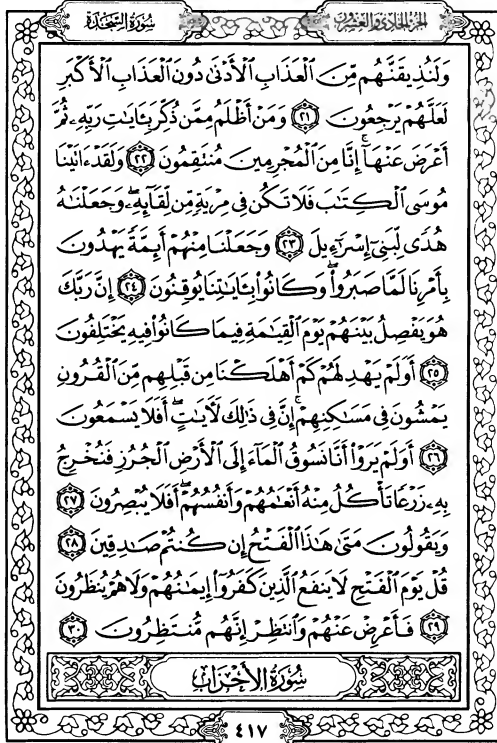 الجزء الحادي والعشرون
سورة السجدة
وَلَنُذِيقَنَّهُم مِّنَ ٱلْعَذَابِ ٱلْأَدْنَىٰ دُونَ ٱلْعَذَابِ ٱلْأَكْبَرِ
لَعَلَّهُمْ يَرْجِعُونَ ٢١ وَمَنْ أَظْلَمُ مِمَّن ذُكِّرَ بِـَٔايَـٰتِ رَبِّهِۦ ثُمَّ
أَعْرَضَ عَنْهَآ ۚ إِنَّا مِنَ ٱلْمُجْرِمِينَ مُنتَقِمُونَ ٢٢ وَلَقَدْ ءَاتَيْنَا
مُوسَى ٱلْكِتَـٰبَ فَلَا تَكُن فِى مِرْيَةٍ مِّن لِّقَآئِهِۦ ۖ وَجَعَلْنَـٰهُ
هُدًى لِّبَنِىٓ إِسْرَٰٓءِيلَ ٢٣ وَجَعَلْنَا مِنْهُمْ أَئِمَّةً يَهْدُونَ
بِأَمْرِنَا لَمَّا صَبَرُوا۟ ۖ وَكَانُوا۟ بِـَٔايَـٰتِنَا يُوقِنُونَ ٢٤ إِنَّ رَبَّكَ
هُوَ يَفْصِلُ بَيْنَهُمْ يَوْمَ ٱلْقِيَـٰمَةِ فِيمَا كَانُوا۟ فِيهِ يَخْتَلِفُونَ
٢٥ أَوَلَمْ يَهْدِ لَهُمْ كَمْ أَهْلَكْنَا مِن قَبْلِهِم مِّنَ ٱلْقُرُونِ
يَمْشُونَ فِى مَسَـٰكِنِهِمْ ۚ إِنَّ فِى ذَٰلِكَ لَـَٔايَـٰتٍ ۖ أَفَلَا يَسْمَعُونَ
٢٦ أَوَلَمْ يَرَوْا۟ أَنَّا نَسُوقُ ٱلْمَآءَ إِلَى ٱلْأَرْضِ ٱلْجُرُزِ فَنُخْرِجُ
بِهِۦ زَرْعًا تَأْكُلُ مِنْهُ أَنْعَـٰمُهُمْ وَأَنفُسُهُمْ ۖ أَفَلَا يُبْصِرُونَ ٢٧
وَيَقُولُونَ مَتَىٰ هَـٰذَا ٱلْفَتْحُ إِن كُنتُمْ صَـٰدِقِينَ ٢٨
قُلْ يَوْمَ ٱلْفَتْحِ لَا يَنفَعُ ٱلَّذِينَ كَفَرُوٓا۟ إِيمَـٰنُهُمْ وَلَا هُمْ يُنظَرُونَ
٢٩ فَأَعْرِضْ عَنْهُمْ وَٱنتَظِرْ إِنَّهُم مُّنتَظِرُونَ ٣٠
سورة الأحزاب
٤١٧